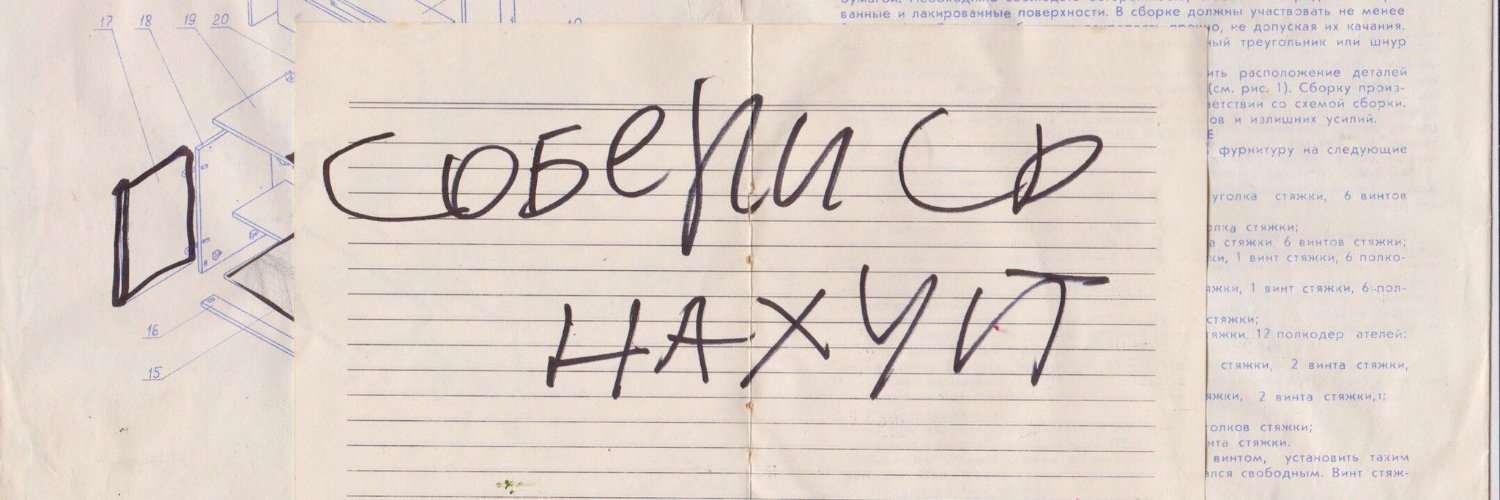 17 18 19 20
ванные и лакированные поверхности. В сборке должны участвовать не менее
но, не допуская их качания.
треугольник или шнур
расположение деталей
(см. рис. 1). Сборку произ-
ветствии со схемой сборки.
ов и излишних усилий.
СОБЕРИСЬ
фурнитуру на следующие
уголка стяжки, 6 винтов
стяжки;
а стяжки 6 винтов стяжки;
ки, 1 винт стяжки, 6 полко-
НАХУЙ
яжки, 1 винт стяжки, 6 пол-
стяжки;
тяжки. 12 полкодер ателей;
16
стяжки, 2 винта стяжки,
15
яжки, 2 винта стяжки,1;
голков стяжки;
нта стяжки.
винтом, установить таким
ался свободным. Винт стяж-